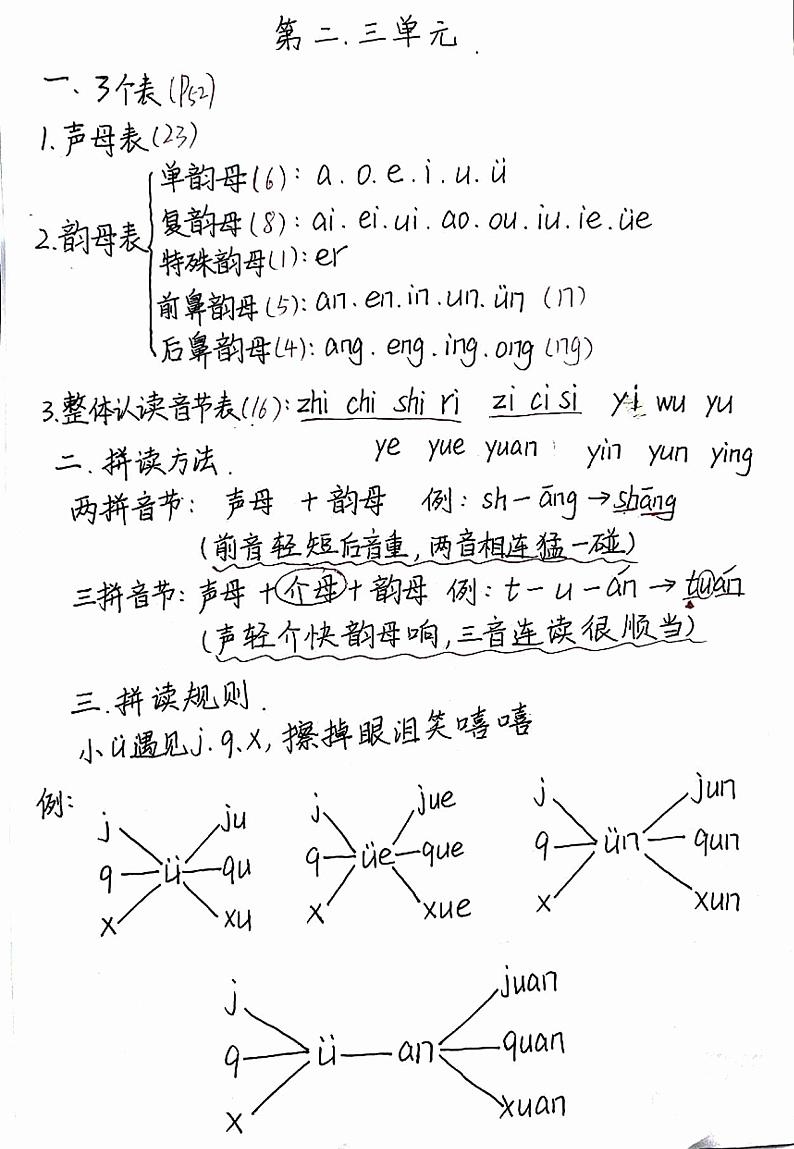 第二.三单元.
一、3个表(P52)
1.声母表(23)
2.韵母表
单韵母(6): a.o.e.i.u.ü
复韵母(8): ai.ei.ui.ao.ou.iu.ie.üe
特殊韵母(1):er
前鼻韵母(5):an.en.in.un.ün (n)
后鼻韵母(4):ang.eng.ing.ong (ng)
3.整体认读音节表(16):zhi chi shi ri zi ci si yi wu yu
ye yue yuan yin yun ying
二.拼读方法.
两拼音节: 声母 +韵母 例: sh-āng→shāng
(前音轻短后音重,两音相连猛一碰)
三拼音节:声母+介母+韵母 例: t-u-án→tuán
(声轻介快韵母响,三音连读很顺当)
三.拼读规则.
小ü遇见j.q.x,擦掉眼泪笑嘻嘻
例:
j ju j jue j jun
q ü qu q üe que q ün qun
x xu x xue x xun
j juan
q ü an quan
x xuan